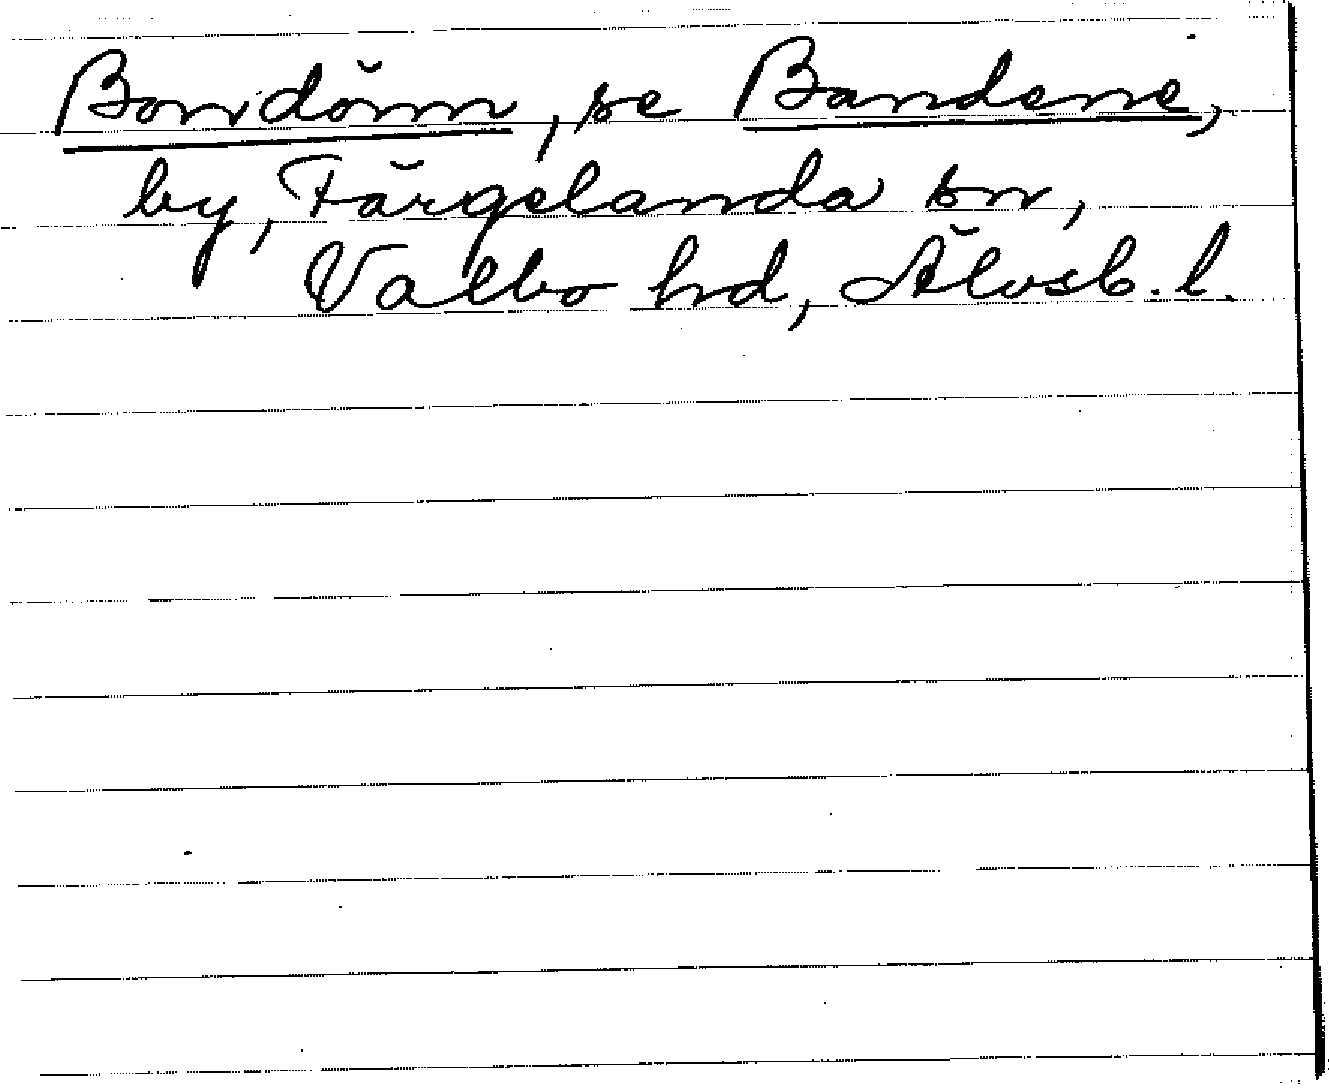 Bondönn, se Bandene,
by, Färgelanda sn,
Valbo hd, Älvsb. l.